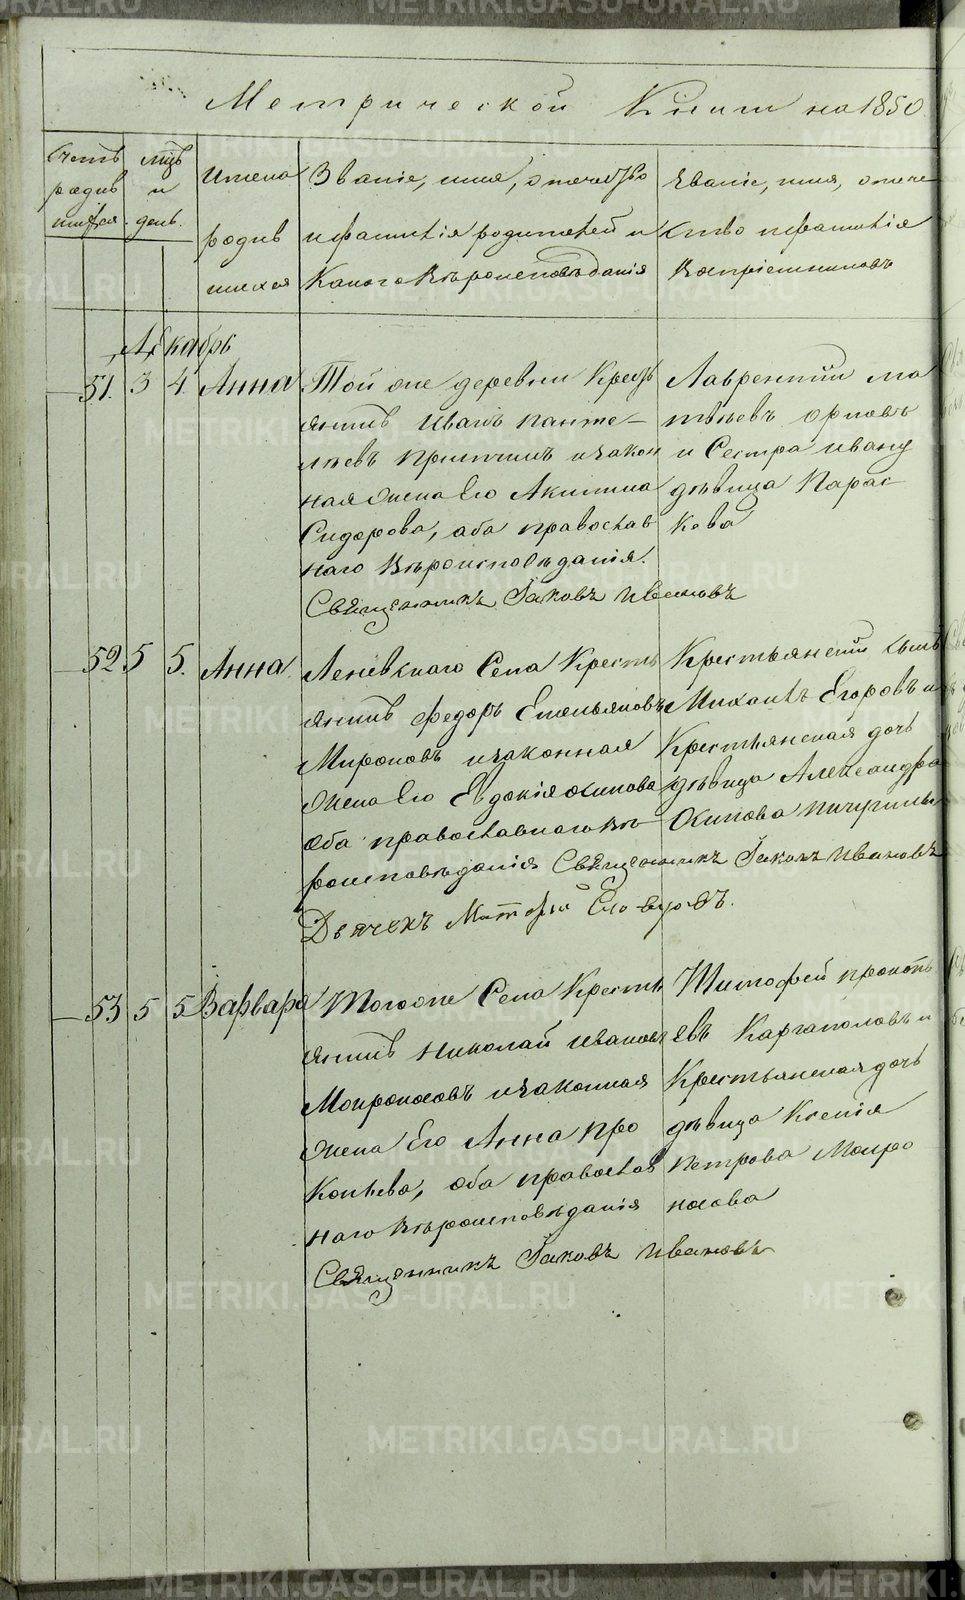 Метрической Книги на 1850
Счетъ
родив
шихся
мцъ
и
день.
Имена
родив
шихся
Званіе, имя, отечество
и фамилія родителей и
Какого Вѣроисповѣданія
Званіе, имя, отече
ство и фамилія
Воспріемниковъ
Декабрь
51. 3 4. Анна
Той же деревни Кресть
янинъ Иванъ Панте-
лѣевъ и закон
ная жена Его Акилина
Сидорова, оба православ
наго Вѣроисповѣданія.
Священникъ Іаковъ Ивановъ
Лаврентій Ма
твѣевъ Орловъ
и Сестра Ивану
дѣвица Парас-
кова
52. 5 5. Анна.
Леневскаго Села Кресть
янинъ Федоръ Емельяновъ
Мироновъ и законная
жена Его Евдокія Осипова
оба православнаго вѣ
роисповѣданія Священникъ Іаковъ Ивановъ
Дьячекъ Егоровъ.
Крестьянскій сынъ
Михаилъ Егоровъ и
Крестьянская дочь
дѣвица Александра
Осипова Пичугины
53 5 5 Варвара
Тогоже Села Кресть
янинъ Николай Ивановъ
Мокроносовъ и законная
жена Его Анна Про
копьева, оба православ
наго Вѣроисповѣданія
Священникъ Іаковъ Ивановъ
Тимофей Прокопь
евъ Каргаполовъ и
Крестьянская дочь
дѣвица Ксенія
Петрова Мокро
носова
METRIKI.GASO-URAL.RU